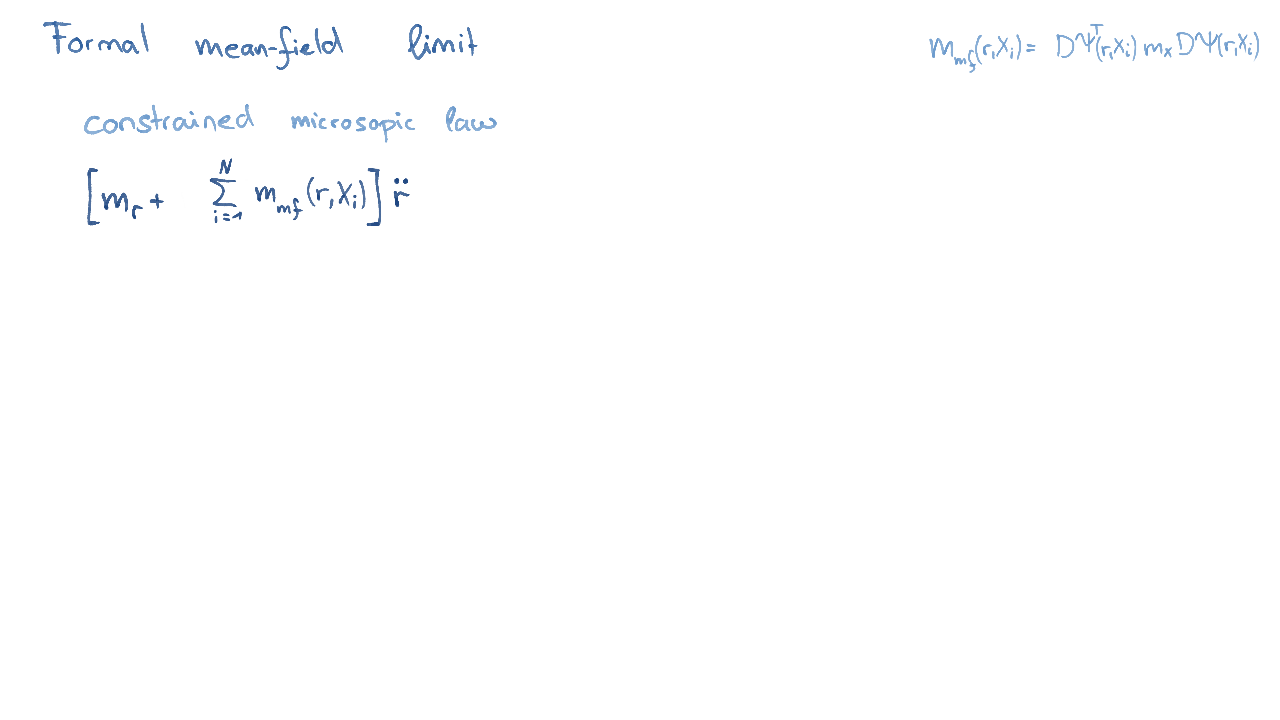 Formal mean-field limit
m_mf(r, X_i) = DΨ^T(r, X_i) m_x DΨ(r, X_i)
constrained microsopic law
[m_r + ∑_{i=1}^{N} m_mf(r, X_i)] r̈